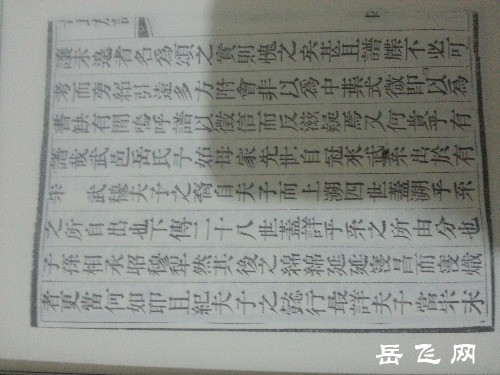 讓未遑者名為頌之實則愧之矣甚且譜牒不必可
考而旁紹引遠多方附會非以為中葉式微即以為
書缺有間嗚呼譜以徵信而反滋疑焉又何貴乎有
譜哉武邑岳氏子始母家先世自冠來武系出於有
宋武穆夫子之裔自夫子而上溯四世蓋溯乎系
之所自出也下傳二十八世蓋詳乎系之所由分也
子孫相承昭穆犂然其後之綿綿延延寖昌而寖熾
者更當何如耶且紀夫子之懿行最詳夫子當
岳飞网